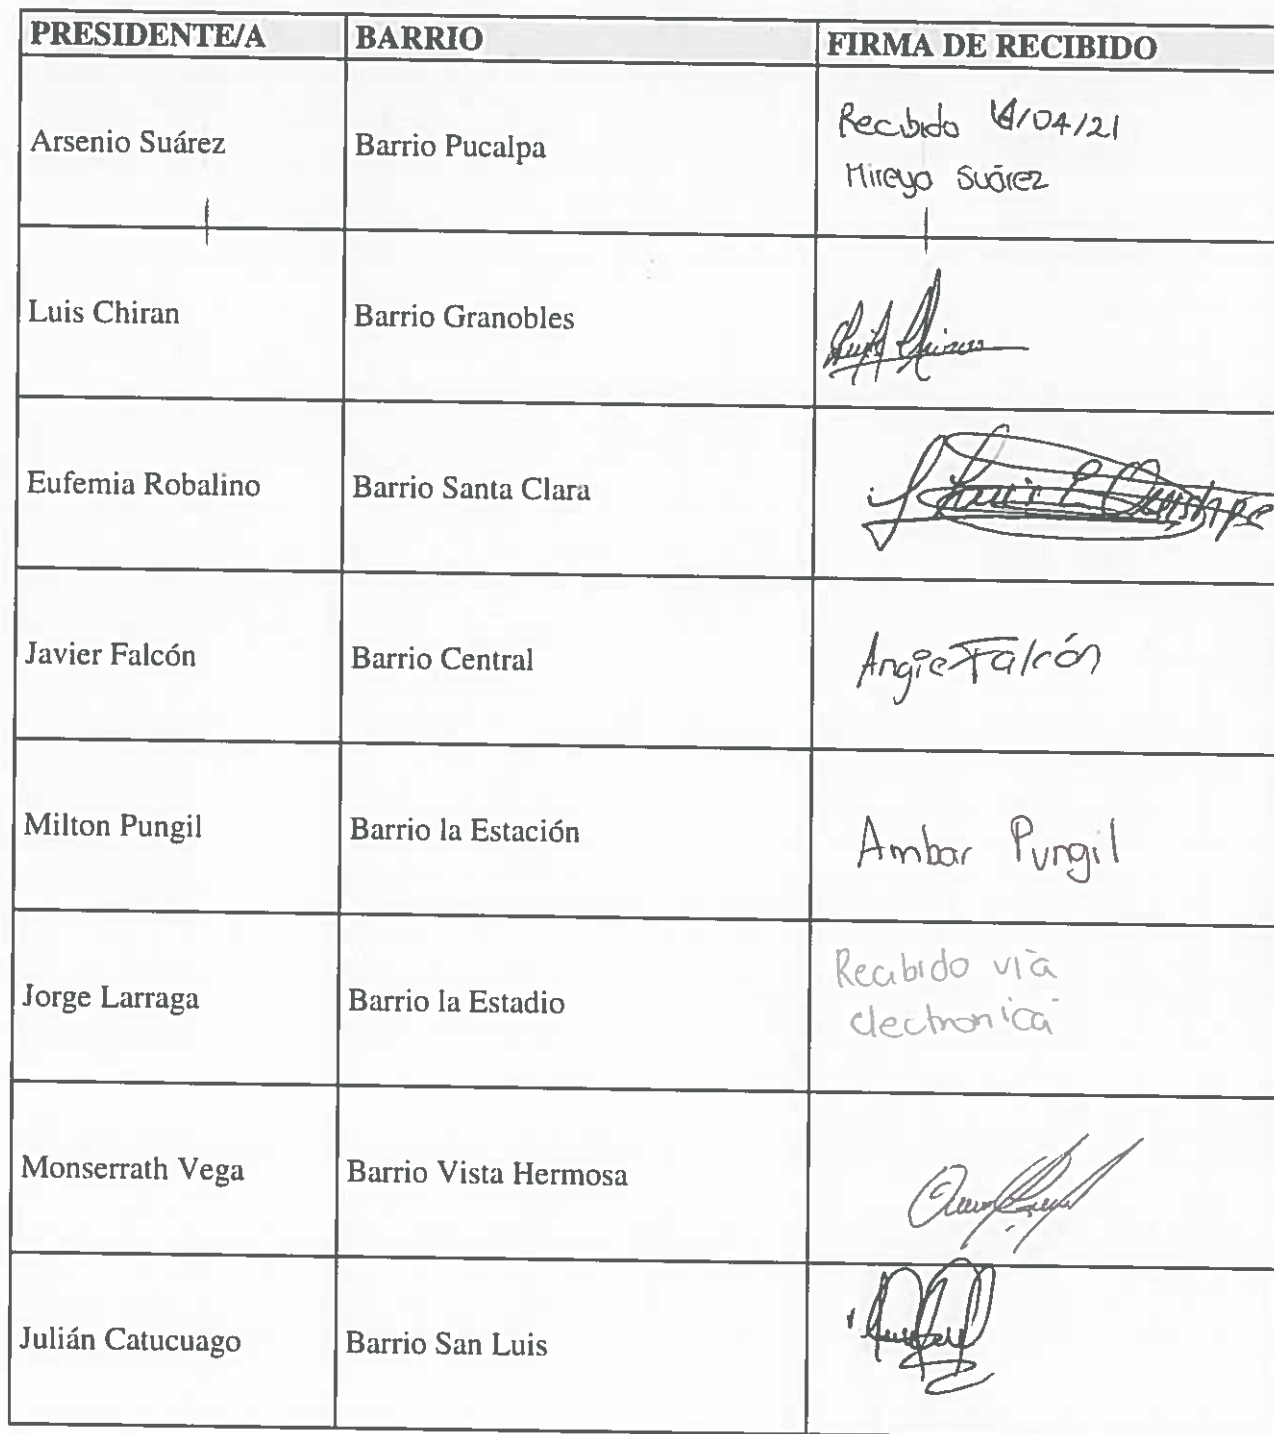 PRESIDENTE/A BARRIO FIRMA DE RECIBIDO
Arsenio Suárez Barrio Pucalpa Recibido /04/21
Mireya Suárez
Luis Chiran Barrio Granobles Luis Chiran
Eufemia Robalino Barrio Santa Clara Luis
Javier Falcón Barrio Central Angie Falcón
Milton Pungil Barrio la Estación Ambar Pungil
Jorge Larraga Barrio la Estadio Recibido vía
electronica
Monserrath Vega Barrio Vista Hermosa
Julián Catucuago Barrio San Luis